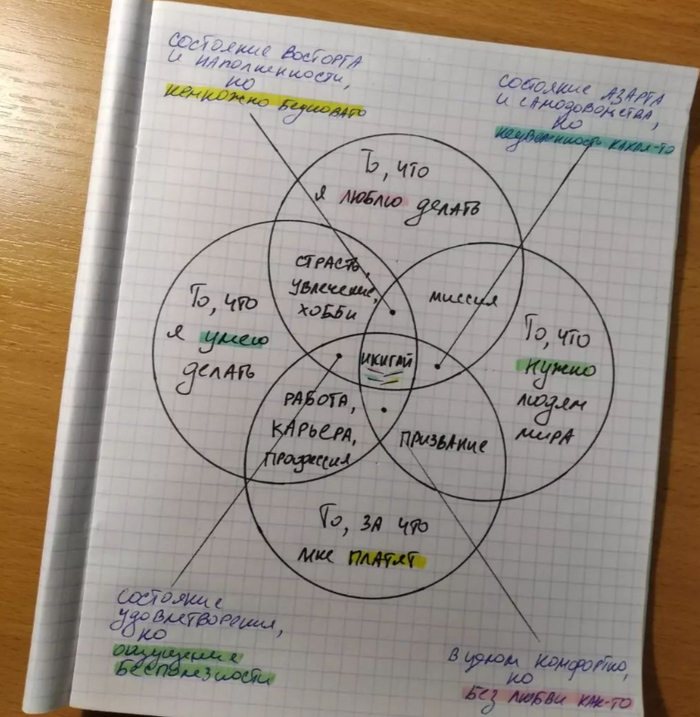 СОСТОЯНИЕ ВОСТОРГА
И НАПОЛНЕННОСТИ,
НО
НЕМНОЖНО БЕДНОВАТО
СОСТОЯНИЕ АЗАРТА
И САМОДОВОЛЬСТВА,
НО
НЕУВЕРЕННОСТЬ КАКАЯ-ТО
То, что
я люблю делать
СТРАСТЬ,
УВЛЕЧЕНИЕ,
ХОББИ
миссия
То, что
я умею
делать
То, что
нужно
людям
мира
ИКИГАЙ
РАБОТА,
КАРЬЕРА,
ПРОФЕССИЯ
ПРИЗВАНИЕ
То, за что
мне ПЛАТЯТ
СОСТОЯНИЕ
УДОВЛЕТВОРЕНИЯ,
НО
ОЩУЩЕНИЕ
БЕСПОЛЕЗНОСТИ
В ЦЕЛОМ КОМФОРТНО,
НО
БЕЗ ЛЮБВИ КАК-ТО